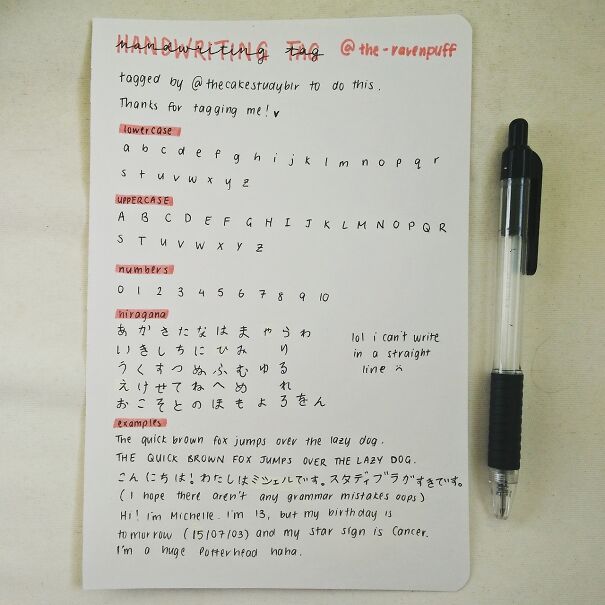 HANDWRITING TAG @the-ravenpuff
handwriting tag
tagged by @thecakestudyblr to do this.
Thanks for tagging me! ♥
lowercase
a b c d e f g h i j k l m n o p q r
s t u v w x y z
UPPERCASE
A B C D E F G H I J K L M N O P Q R
S T U V W X Y Z
numbers
0 1 2 3 4 5 6 7 8 9 10
hiragana
あ か さ た な は ま や ら わ
い き し ち に ひ み り
う く す つ ぬ ふ む ゆ る
え け せ て ね へ め れ
お こ そ と の ほ も よ ろ を ん
lol i can't write
in a straight
line :(
examples
The quick brown fox jumps over the lazy dog.
THE QUICK BROWN FOX JUMPS OVER THE LAZY DOG.
こんにちは！わたしはミシェルです。スタディブラがすきです。
(I hope there aren't any grammar mistakes oops)
Hi! I'm Michelle. I'm 13, but my birthday is
tomorrow (15/07/03) and my star sign is Cancer.
I'm a huge Potterhead haha.